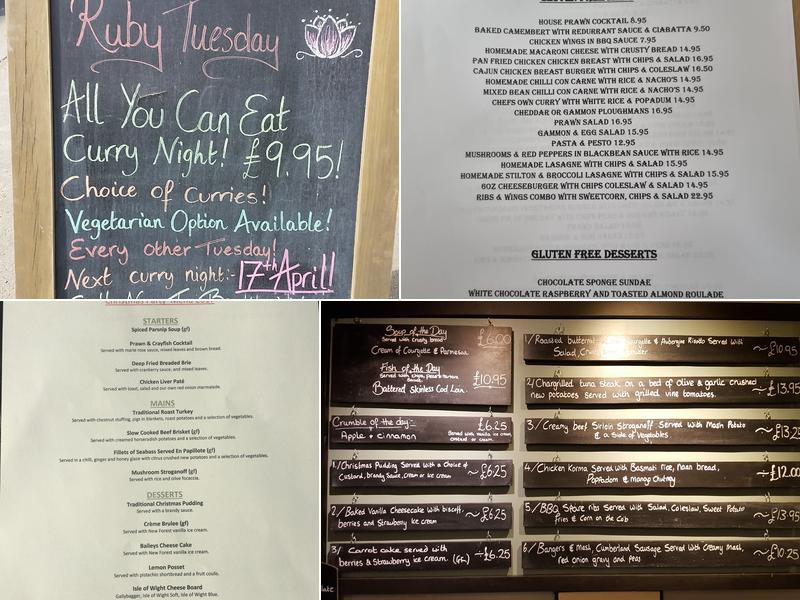 Ruby Tuesday
All You Can Eat
Curry Night! £9.95!
Choice of Curries!
Vegetarian Option Available!
Every other Tuesday!
Next curry night:- 17th April!
HOUSE PRAWN COCKTAIL 8.95
BAKED CAMEMBERT WITH REDURRANT SAUCE & CIABATTA 9.50
CHICKEN WINGS IN BBQ SAUCE 7.95
HOMEMADE MACARONI CHEESE WITH CRUSTY BREAD 14.95
PAN FRIED CHICKEN CHICKEN BREAST WITH CHIPS & SALAD 16.95
CAJUN CHICKEN BREAST BURGER WITH CHIPS & COLESLAW 16.50
HOMEMADE CHILLI CON CARNE WITH RICE & NACHO'S 14.95
MIXED BEAN CHILLI CON CARNE WITH RICE & NACHO'S 14.95
CHEFS OWN CURRY WITH WHITE RICE & POPADUM 14.95
CHEDDAR OR GAMMON PLOUGHMANS 16.95
PRAWN SALAD 16.95
GAMMON & EGG SALAD 15.95
PASTA & PESTO 12.95
MUSHROOMS & RED PEPPERS IN BLACKBEAN SAUCE WITH RICE 14.95
HOMEMADE LASAGNE WITH CHIPS & SALAD 15.95
HOMEMADE STILTON & BROCCOLI LASAGNE WITH CHIPS & SALAD 15.95
6OZ CHEESEBURGER WITH CHIPS COLESLAW & SALAD 14.95
RIBS & WINGS COMBO WITH SWEETCORN, CHIPS & SALAD 22.95
GLUTEN FREE DESSERTS
CHOCOLATE SPONGE SUNDAE
WHITE CHOCOLATE RASPBERRY AND TOASTED ALMOND ROULADE
Christmas Party Menu 2021
STARTERS
Spiced Parsnip Soup (gf)
Prawn & Crayfish Cocktail
Served with marie rose sauce, mixed leaves and brown bread.
Deep Fried Breaded Brie
Served with cranberry sauce, and mixed leaves.
Chicken Liver Paté
Served with toast, salad and our own red onion marmalade.
MAINS
Traditional Roast Turkey
Served with chestnut stuffing, pigs in blankets, roast potatoes and a selection of vegetables.
Slow Cooked Beef Brisket (gf)
Served with creamed horseradish potatoes and a selection of vegetables.
Fillets of Seabass Served En Papillote (gf)
Served in a chilli, ginger and honey glaze with citrus crushed new potatoes and a selection of vegetables.
Mushroom Stroganoff (gf)
Served with rice and olive focaccia.
DESSERTS
Traditional Christmas Pudding
Served with a brandy sauce.
Crème Brulee (gf)
Served with New Forest vanilla ice cream.
Baileys Cheese Cake
Served with New Forest vanilla ice cream.
Lemon Posset
Served with pistachio shortbread and a fruit coulis.
Isle of Wight Cheese Board
Gallybagger, Isle of Wight Soft, Isle of Wight Blue.
Soup of the Day £6.00
Served with crusty bread
Cream of Courgette & Parmesan
Fish of the Day
Served with chips, peas & tartare
£10.95
Battered Skinless Cod Loin.
Crumble of the day:- £6.25
Apple + Cinnamon Served with Vanilla ice cream,
custard or cream.
1/ Christmas Pudding Served with a Choice of
Custard, brandy Sauce, cream or ice cream ~ £6.25
2/ Baked Vanilla Cheesecake with biscuit,
berries and Strawberry ice cream ~ £6.25
3/ Carrot cake served with
berries & Strawberry ice cream. (GF) ~ £6.25
1/ Roasted butternut Courgette & Aubergine Risotto Served With
Salad, ~ £10.95
2/ Chargrilled tuna steak on a bed of olive & garlic crushed
new potatoes served with grilled vine tomatoes. ~ £13.95
3/ Creamy beef Sirloin Stroganoff Served with Mash Potato
& a Side of Vegetables.
4/ Chicken Korma Served with Basmati rice, Naan bread,
Poppadom & mango Chutney £12.00
5/ BBQ Spare ribs Served with Salad, Coleslaw, Sweet Potato
Fries & Corn on the Cob ~ £13.95
6/ Bangers & Mash, Cumberland Sausage Served with Creamy Mash,
red onion gravy and peas ~ £10.25